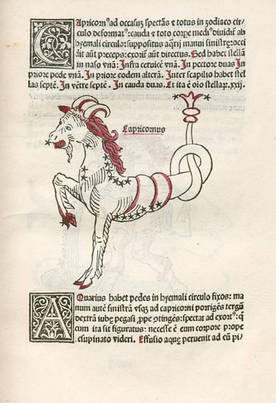 Capricornꝰ ad occasuʒ spectãs ⁊ totus in zodiaco circu
lo deformatꝰ: cauda ⁊ toto corpe mediꝰ diuidit̃ ab
hyemali circulo: suppositus aq̃rij manui sinistrę: occi
dit aũt pręceps: exorit̃ aũt directus. Sed habet stellã
in naso vnã: Infra ceruicẽ vnã. In pectore duas: In
priore pede vnã. In priore eodem alterã. Inter scapilio habet stel
las septẽ. In vẽtre septẽ. In cauda duas. Et ita ẽ oĩo stellaꝝ.xxij.
Capricornus
Aquarius habet pedes in hyemali circulo fixos: ma
num autẽ sinistrã vsqȝ ad capricorni porrigẽs tergũ
dextrã iubę pegasi ,ppe ↄtingẽs: spectat ad exortꝰ: q̃
cum ita sit figuratus: necesse ẽ eum corpore prope
supinato videri. Effusio aquę peruenit ad eũ pi-